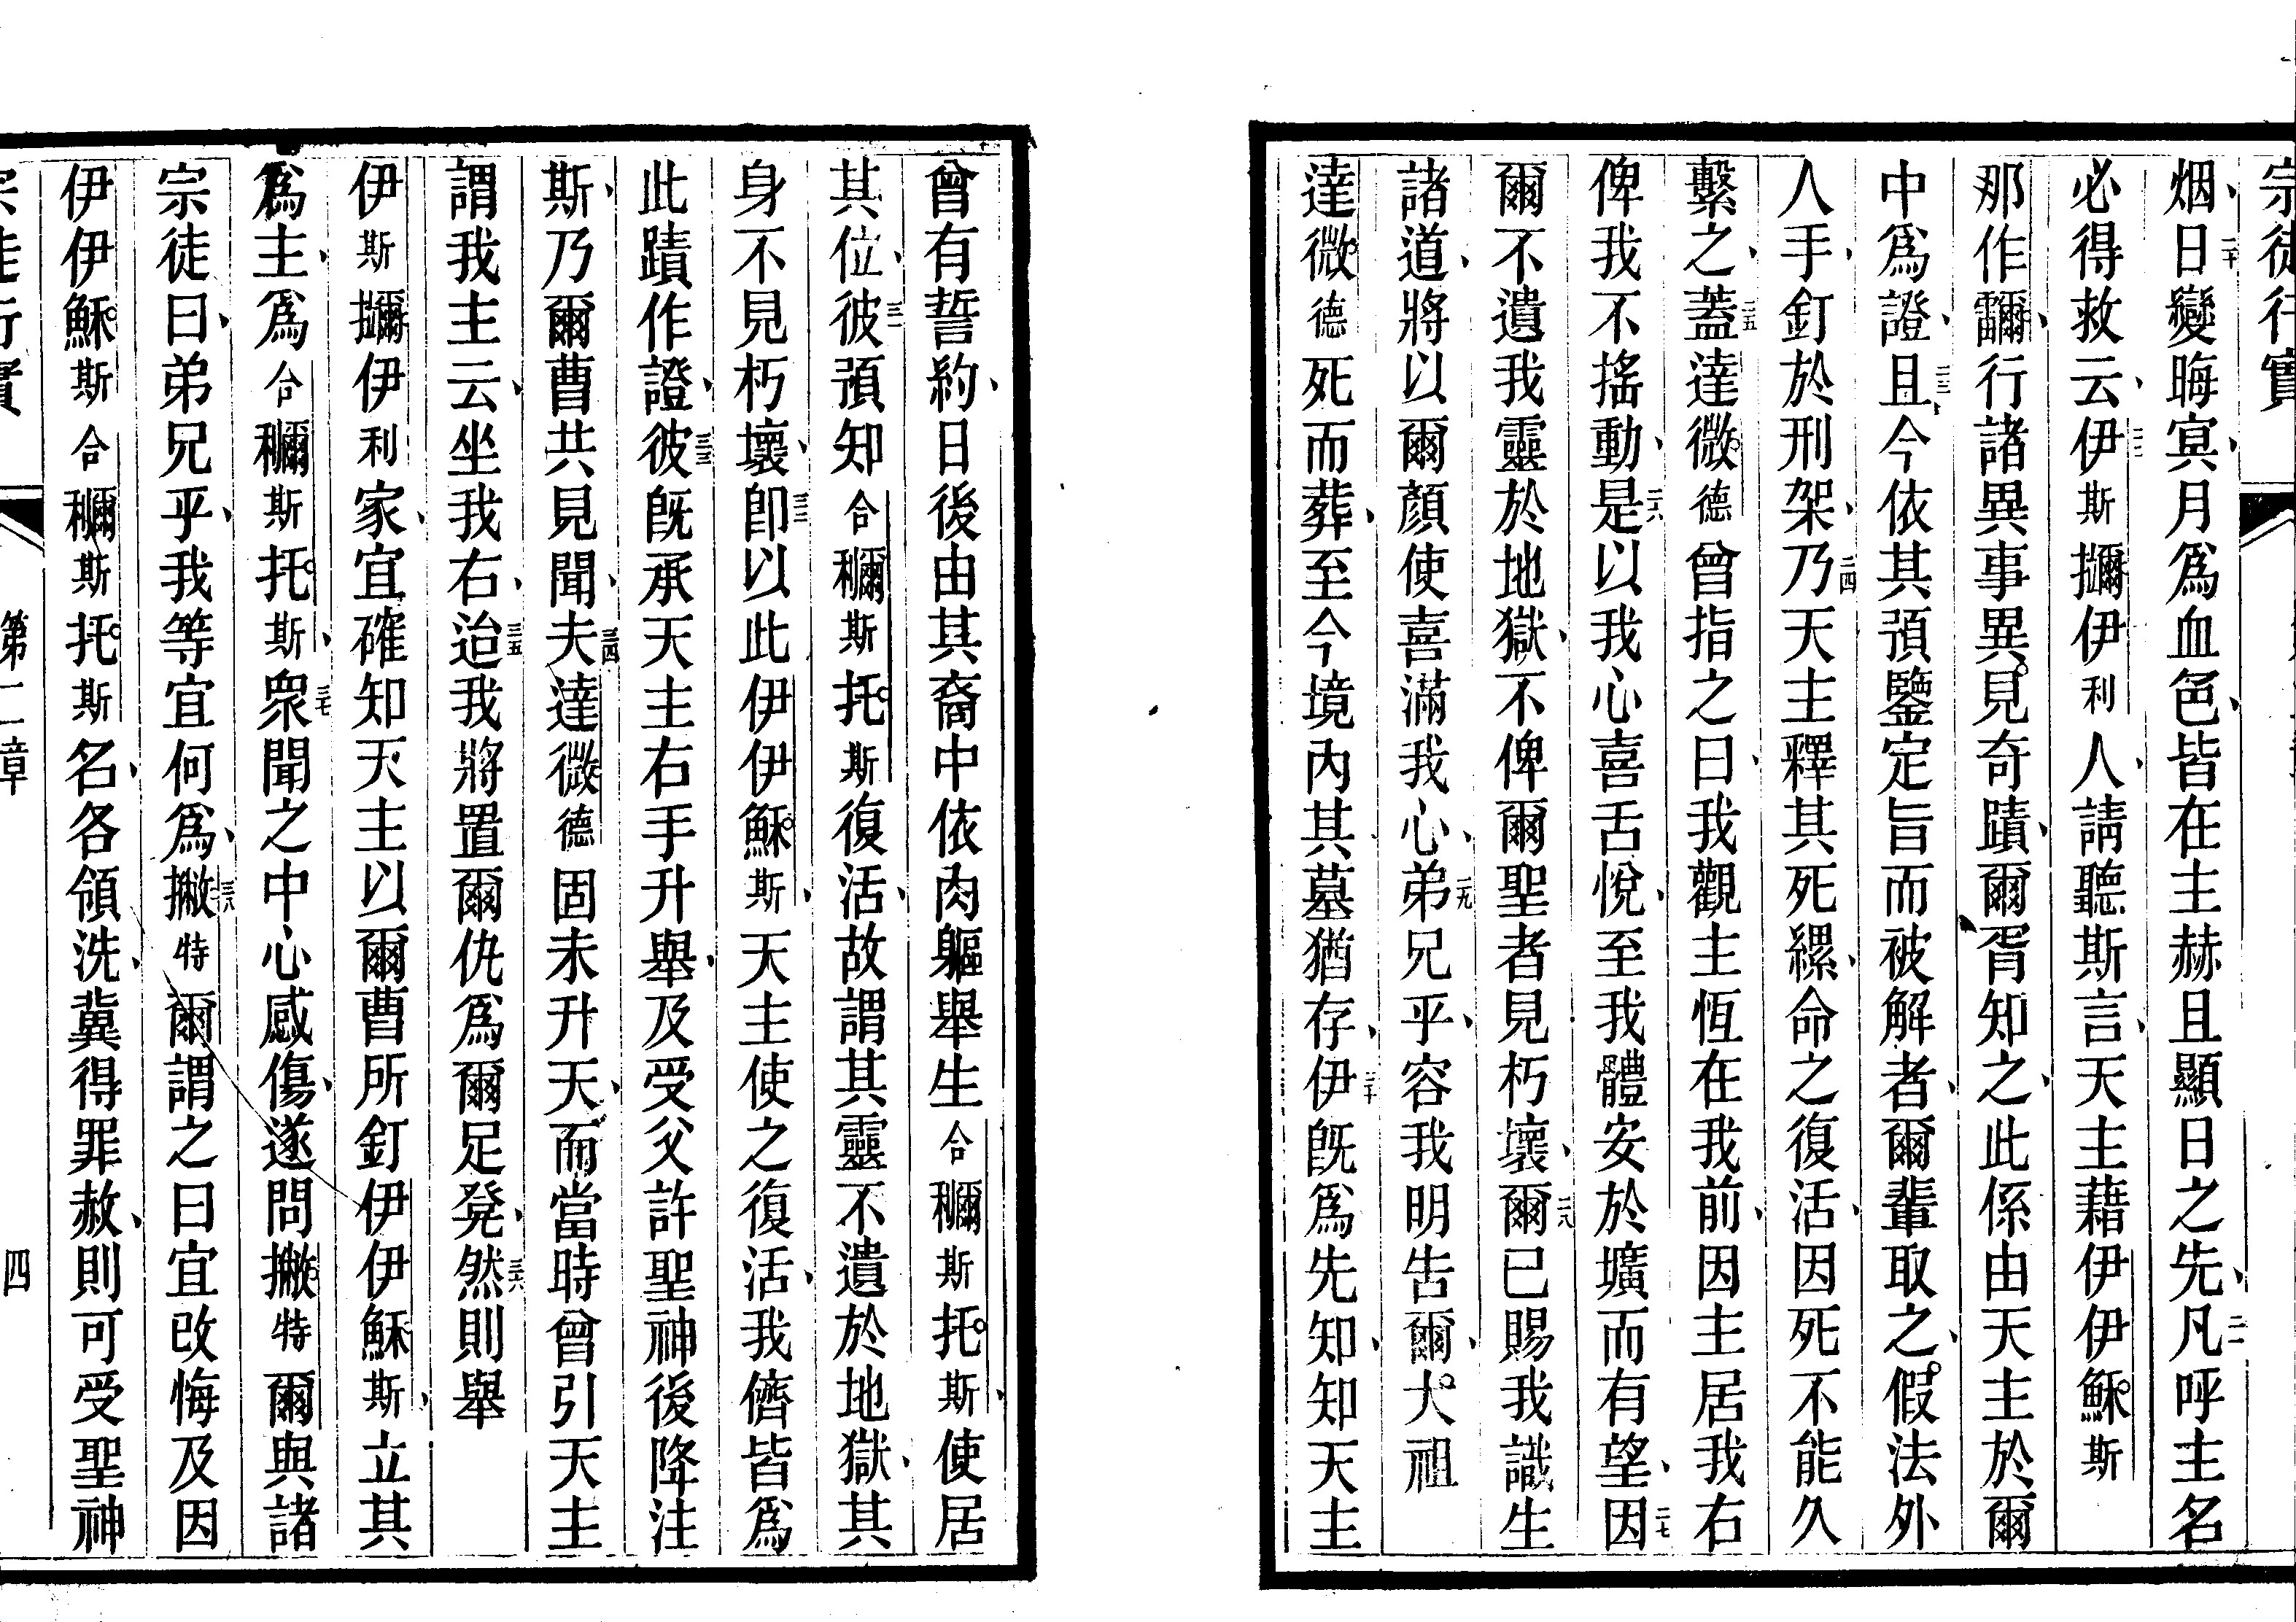 宗徒行實
烟、日二十變晦宾、月爲血色、皆在主赫且顯日之先、凡二一呼主名
必得救云、伊二二斯㩶伊利人、請聽斯言、天主藉伊伊穌斯
那作行諸異事異見奇蹟、爾胥知之、此係由天主於爾
中爲證、且二三今依其預鑒定旨而被解者、爾輩取之、假法外
人手、釘於刑架、乃二四天主釋其死縲、命之復活、因死不能久
繫之、蓋二五達微德曾指之曰、我觀主恆在我前、因主居我右
俾我不搖動、是二六以我心喜舌悅、至我體安於壙而有望、因二七
爾不遺我靈於地獄、不俾爾聖者見朽壞、爾二八已賜我識生
諸道、將以爾顏使喜滿我心、弟二九兄乎、容我明告爾、大祖
達微德死而葬、至今境內其墓猶存、伊三十旣爲先知、知天主
曾有誓約、日後由其裔中依肉軀舉生合穪斯托斯、使居
其位、彼三一預知合穪斯托斯復活、故謂其靈不遺於地獄、其
身不見朽壞、卽三二以此伊伊穌斯、天主使之復活、我儕皆爲
此蹟作證、彼三三旣承天主右手升舉、及受父許聖神後降注
斯、乃爾曹共見聞、夫三四達微德固未升天、而當時曾引天主
謂我主云、坐我右、迨三五我將置爾仇爲爾足凳、然三六則舉
伊斯㩶伊利家、宜確知天主以爾曹所釘伊伊穌斯、立其
爲主、爲合穪斯托斯、眾三七聞之中心感傷、遂問撇特爾與諸
宗徒曰、弟兄乎、我等宜何爲、撇三八特爾謂之曰宜改悔及因
伊伊穌斯合穪斯托斯名、各領洗、冀得罪赦、則可受聖神
宗徒行實 第二章 四